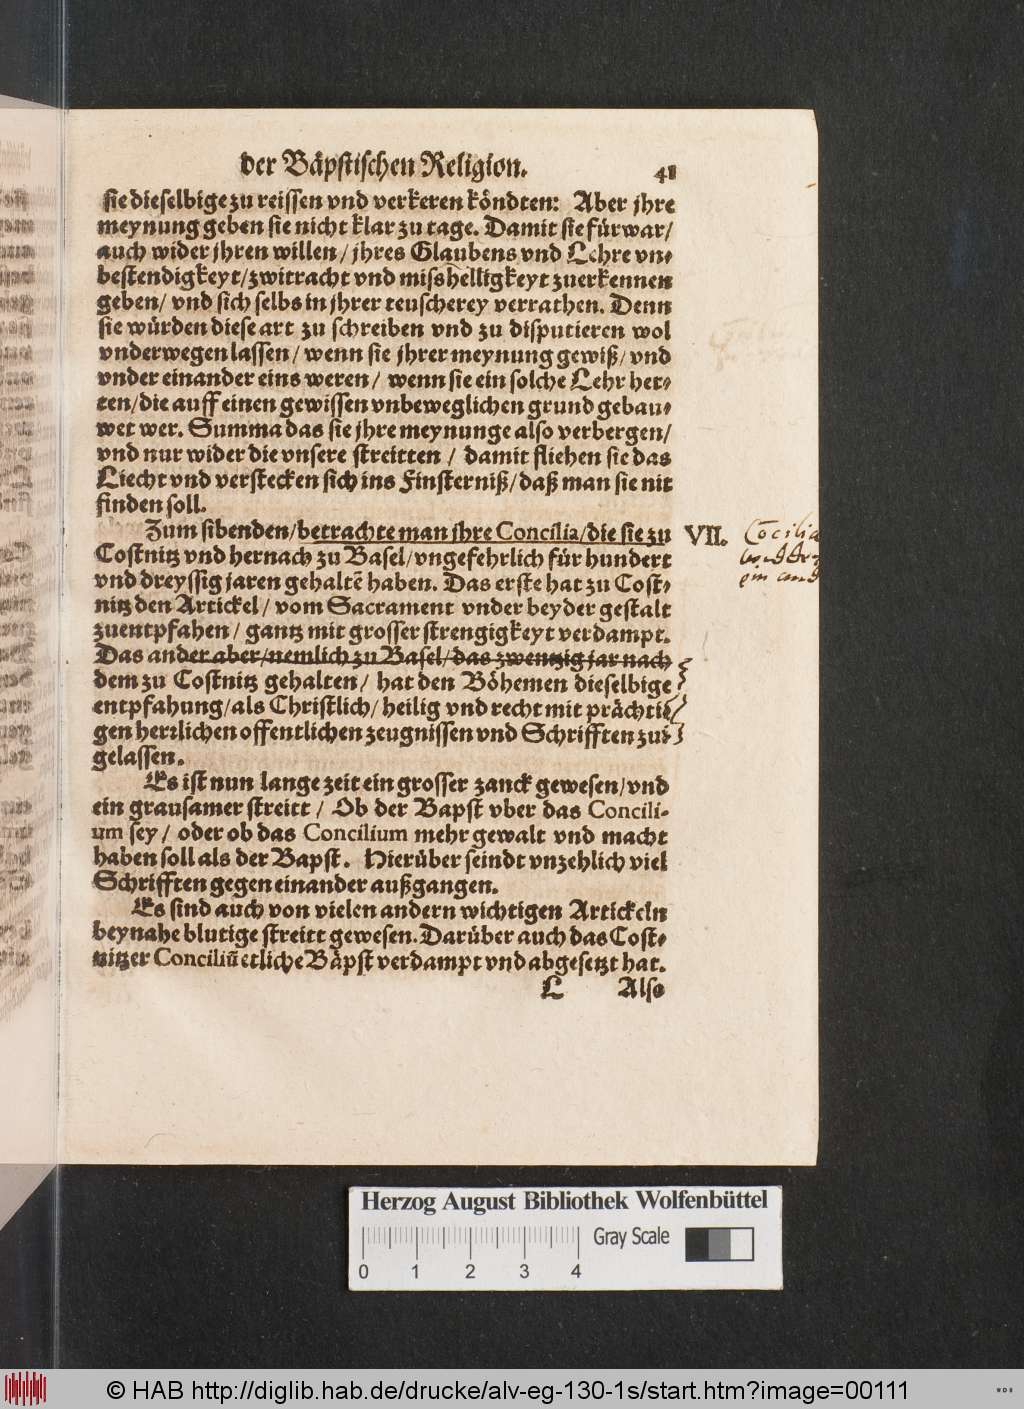 der Bäpstischen Religion. 41
sie dieselbige zu reissen vnd verkeren köndten: Aber jhre
meynung geben sie nicht klar zu tage. Damit sie fürwar/
auch wider jhren willen/ jhres Glaubens vnd Lehre vn⸗
bestendigkeyt/ zwitracht vnd misshelligkeyt zuerkennen
geben/ vnd sich selbs in jhrer teuscherey verrathen. Denn
sie würden diese art zu schreiben vnd zu disputieren wol
vnderwegen lassen/ wenn sie jhrer meynung gewiß/ vnd
vnder einander eins weren/ wenn sie ein solche Lehr het⸗
ten/ die auff einen gewissen vnbeweglichen grund gebau⸗
wet wer. Summa das sie jhre meynunge also verbergen/
vnd nur wider die vnsere streitten/ damit fliehen sie das
Liecht vnd verstecken sich ins Finsterniß/ daß man sie nit
finden soll.
Zum sibenden/ betrachte man jhre Concilia/ die sie zu VII.
Costnitz vnd hernach zu Basel/ vngefehrlich für hundert
vnd dreyssig jaren gehaltē haben. Das erste hat zu Cost⸗
nitz den Artickel/ vom Sacrament vnder beyder gestalt
zuentpfahen/ gantz mit grosser strengigkeyt verdampt.
Das ander aber/ nemlich zu Basel/ das zwentzig jar nach
dem zu Costnitz gehalten/ hat den Böhemen dieselbige
entpfahung/ als Christlich/ heilig vnd recht mit prächti⸗
gen herrlichen offentlichen zeugnissen vnd Schrifften zu⸗
gelassen.
Es ist nun lange zeit ein grosser zanck gewesen/ vnd
ein grausamer streitt/ Ob der Bapst vber das Concili-
um sey/ oder ob das Concilium mehr gewalt vnd macht
haben soll als der Bapst. Hierüber seindt vnzehlich viel
Schrifften gegen einander außgangen.
Es sind auch von vielen andern wichtigen Artickeln
beynahe blutige streitt gewesen. Darüber auch das Cost⸗
nitzer Conciliū etliche Bäpst verdampt vnd abgesetzt hat.
L Also
Cōcilia
Herzog August Bibliothek Wolfenbüttel
Gray Scale
0 1 2 3 4
© HAB http://diglib.hab.de/drucke/alv-eg-130-1s/start.htm?image=00111